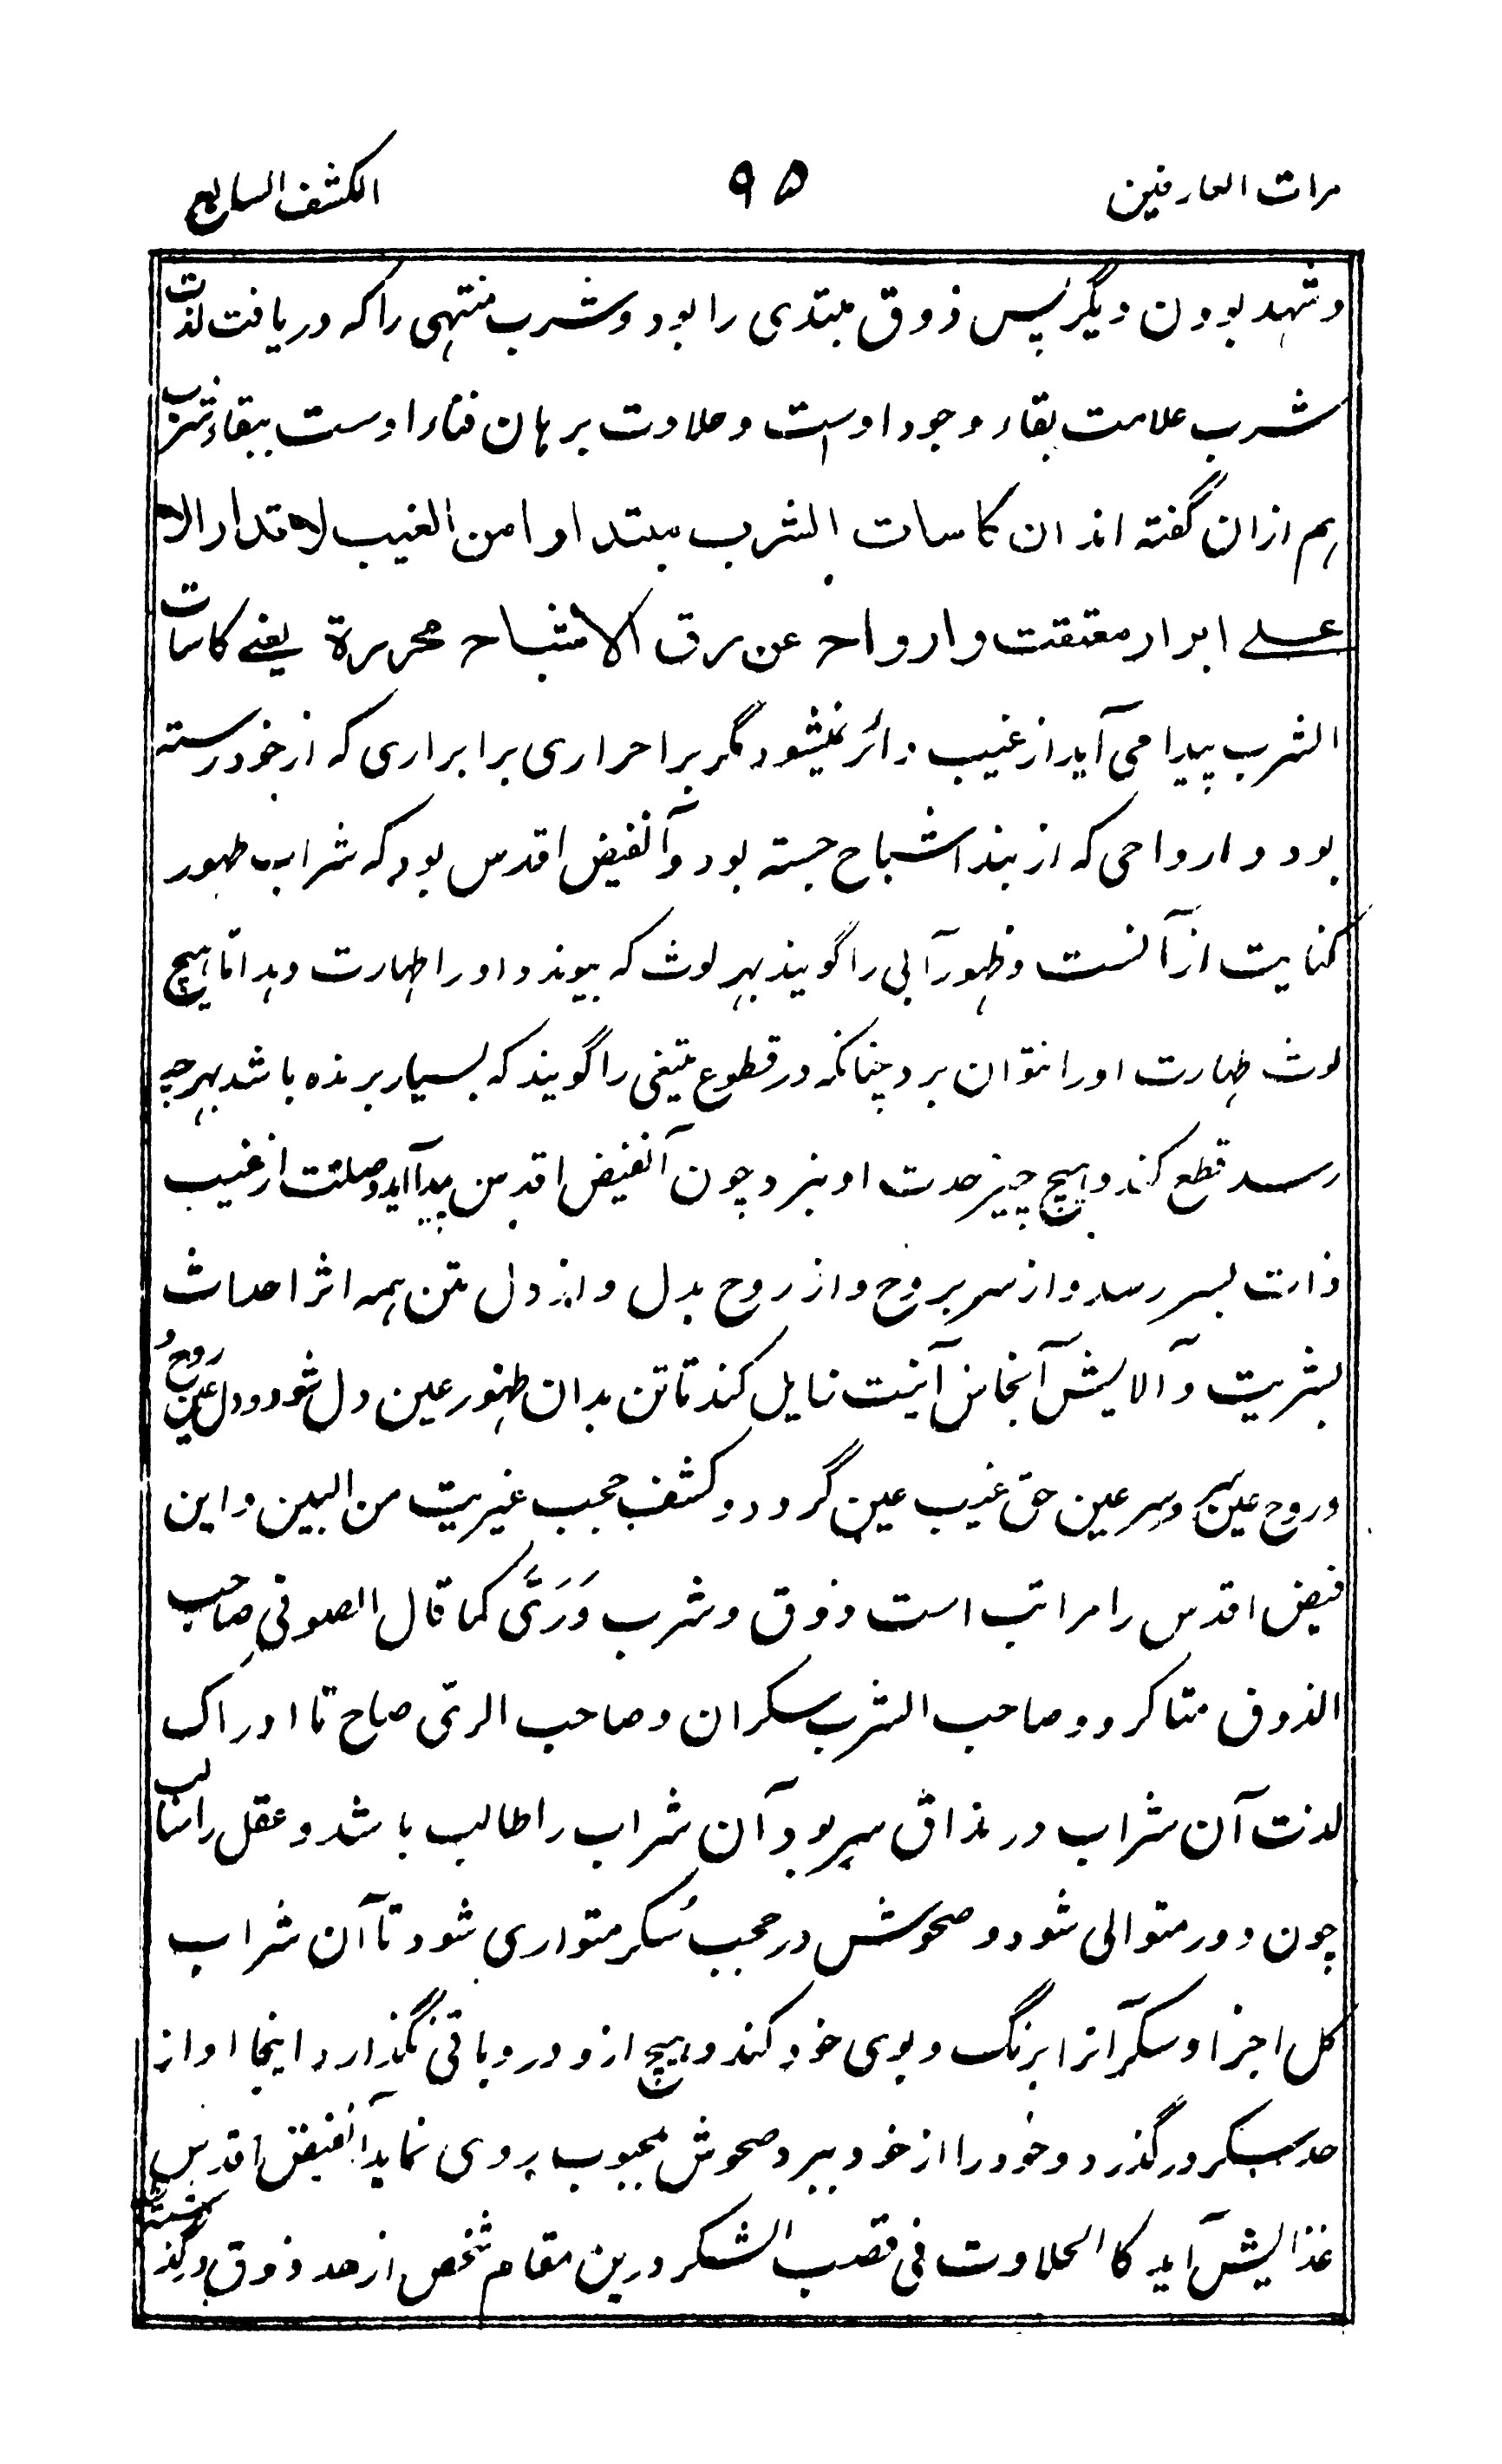 مرات العارفین ۹۵ الکشف السابع
و شهد بودن دیگر پس ذوق مبتدی را بود و شرب منتهی را که دریافت لذت
شرب علامت بقاء وجود اوست و حلاوت برهان فناء اوست ببقاء شرب
هم ازان گفته اند ان کاسات الشرب مبتد اوا من الغیب لا تدار الا
علے ابرار معتقت و ارواح عن رق الاشباح محررة یعنے کاسات
الشرب پیدا می آید از غیب دائر نمیشود مگر بر احراری بر ابراری که از خود رسته
بود و ارواحی که از بند اشباح جسته بود و آنفیض اقدس بود که شراب طهور
کنایت از آنست و ظهور آبی را گویند بهر لوث که پیوندد او را طهارت دهد اما هیچ
لوث طهارت او را نتوان برد چنانکه در قطوع تیغی را گویند که بسیار برنده باشد بهر چه
رسد قطع کند و هیچ چیز حدت او نبرد چون آنفیض اقدس پیدا آید وصلتت از غیب
ذات بسر رسد و از سر بروح و از روح بدل و از دل بتن همه اثر احداث
بشریت و آلایش آنجاس آنیت زایل کند تا تن بدان طهور عین دل شود و دل عین روح و
و روح عین سر و سر عین حق غیب عین گردد و کشف حجب غیریت من البین و این
فیض اقدس را مراتب است ذوق و شرب وَرَیّ کما قال الصوفی صاحب
الذوق متاکر و صاحب الشرب سکران و صاحب الریّ صاح تا ادراک
لذت آن شراب در مذاق سر بود آن شراب را طالب باشد و عقل را سالب
چون دور متوالی شود و صحوش در حجب سُکر متواری شود تا آن شراب
کل اجزا و سکر آنرا برنگ و بوی خود کند و هیچ ازو درو باقی نگذارد اینجا او از
حد سکر درگذرد و خود را از خود ببرد صحوش محبوب روی نماید آنفیض اقدس
غذایش آید کا الحلاوت فی قصب الشکر درین مقام شخص از حد ذوق درگذشته